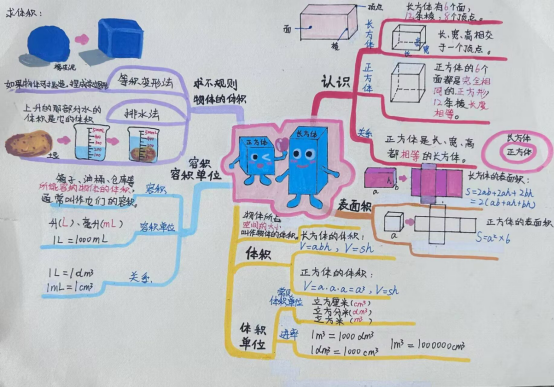 求体积：
橡皮泥
等积变形法
上升的那部分水的
体积是它的体积
排水法
求不规则
物体的体积
顶点
面
棱
长方体
长方体有6个面，
12条棱，8个顶点。
长、宽、高相交
于一个顶点。
认识
正方体
正方体的6个
面都是完全相
同的正方形，
12条棱长度
相等。
关系
正方体是长、宽、高
都相等的长方体。
长方体
正方体
正方体
长方体
容积
容积单位
容积
箱子、油桶、仓库等
所能容纳物体的体积，
通常叫作它们的容积。
容积单位
升(L)、毫升(mL)
1L=1000mL
关系
1L=1dm³
1mL=1cm³
表面积
长方体的表面积：
S=2ab+2ah+2bh
=2(ab+ah+bh)
a
b
h
正方体的表面积
S=a²×6
a
体积
物体所占
空间的大小
叫作物体的体积。
长方体的体积：
V=abh，V=sh
正方体的体积：
V=a·a·a=a³，V=sh
体积
单位
常见
体积单位
立方厘米(cm³)
立方分米(dm³)
立方米(m³)
进率
1m³=1000dm³
1dm³=1000cm³
1m³=1000000cm³